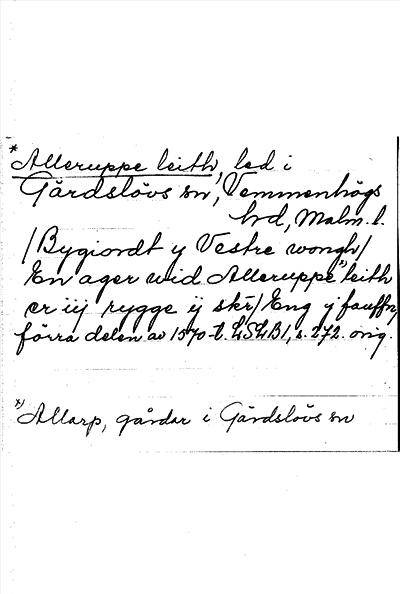 *Alleruppe leith, led i
Gärdslövs sn, Vemmenhögs
hd, Malm. l.
/Bygiordt y Vestre wongh/
En ager wid Alleruppe x) leith
er iij rygge ij skr/ Eng y fauffn/
förra delen av 1570-t. LSLB1, s. 272. orig.
x) Allarp, gårdar i Gärdslövs sn